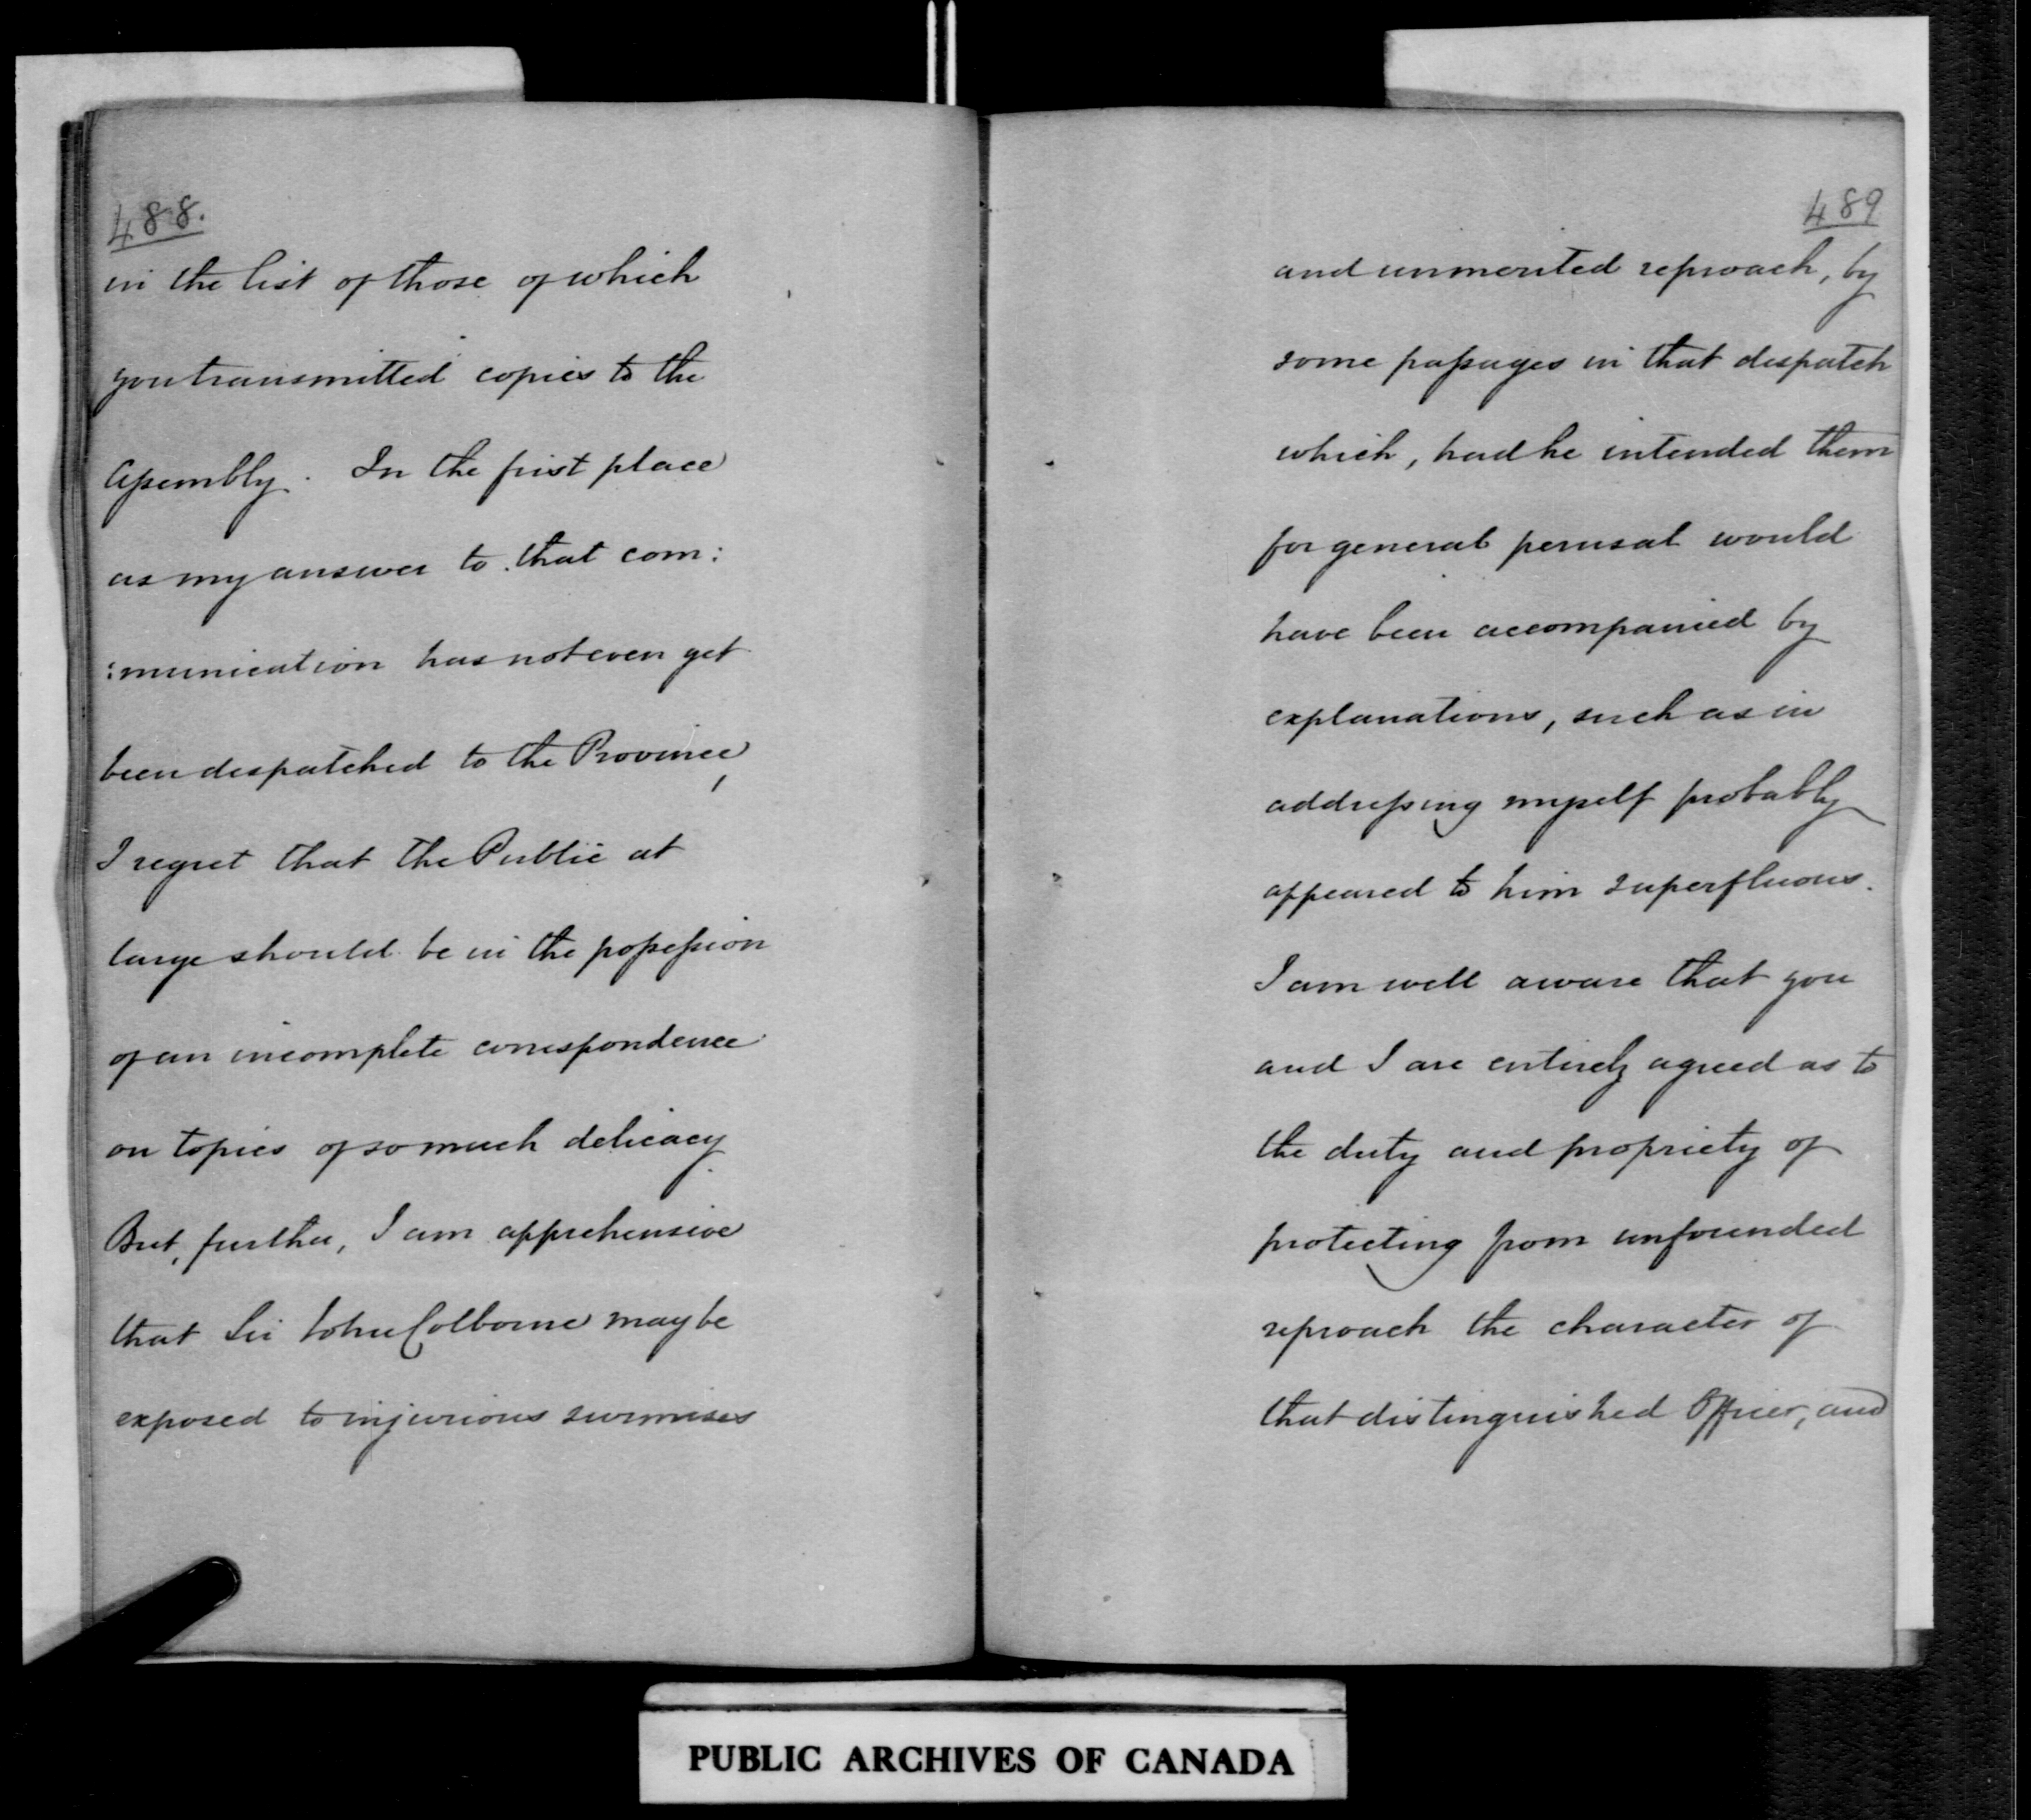 488.
in the list of those of which
you transmitted copies to the
Assembly. In the first place
as my answer to that com:
:munication has not even yet
been despatched to the Province,
I regret that the Public at
large should be in the possession
of an incomplete correspondence
on topics of so much delicacy.
But, further, I am apprehensive
that Sir John Colborne may be
exposed to injurious surmises
489
and unmerited reproach, by
some passages in that despatch
which, had he intended them
for general perusal would
have been accompanied by
explanations, such as in
addressing myself probably
appeared to him superfluous.
I am well aware that you
and I are entirely agreed as to
the duty and propriety of
protecting from unfounded
reproach the character of
that distinguished Officer, and
PUBLIC ARCHIVES OF CANADA